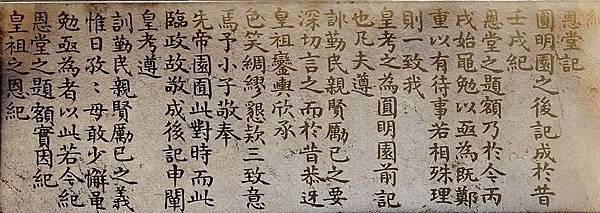 恩堂記
圓明園之後記成於昔
壬戌紀
恩堂之題額乃於今丙
戌始黽勉以亟為既鄭
重以有待事若相殊理
則一致我
皇考之為圓明園前記
也凡夫遵
訓勤民親賢勵己之要
深切言之而於昔恭迓
皇祖鑾輿欣承
色笑綢繆懇款三致意
焉予小子敬奉
先帝園囿此對時而此
臨政故敬成後記申闡
皇考遵
訓勤民親賢勵己之義
惟日孜孜毋敢少懈黽
勉亟為者以此若今紀
恩堂之題額實因紀
皇祖之恩紀